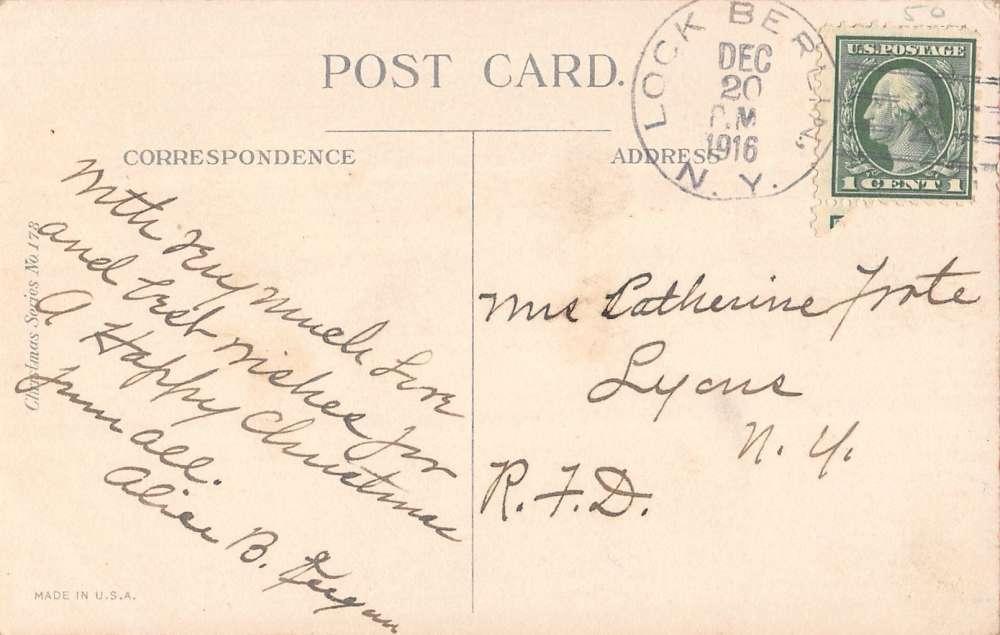 50
POST CARD.
LOCK BERLIN,
DEC
20
P.M
1916
N.Y.
U.S. POSTAGE
1 CENT 1
CORRESPONDENCE
ADDRESS
Christmas Series No. 178
With very much Love
and best wishes for
A Happy Christmas
from all.
Alice B.
Mrs Catherine
Lyons
N. Y.
R.F.D.
MADE IN U.S.A.